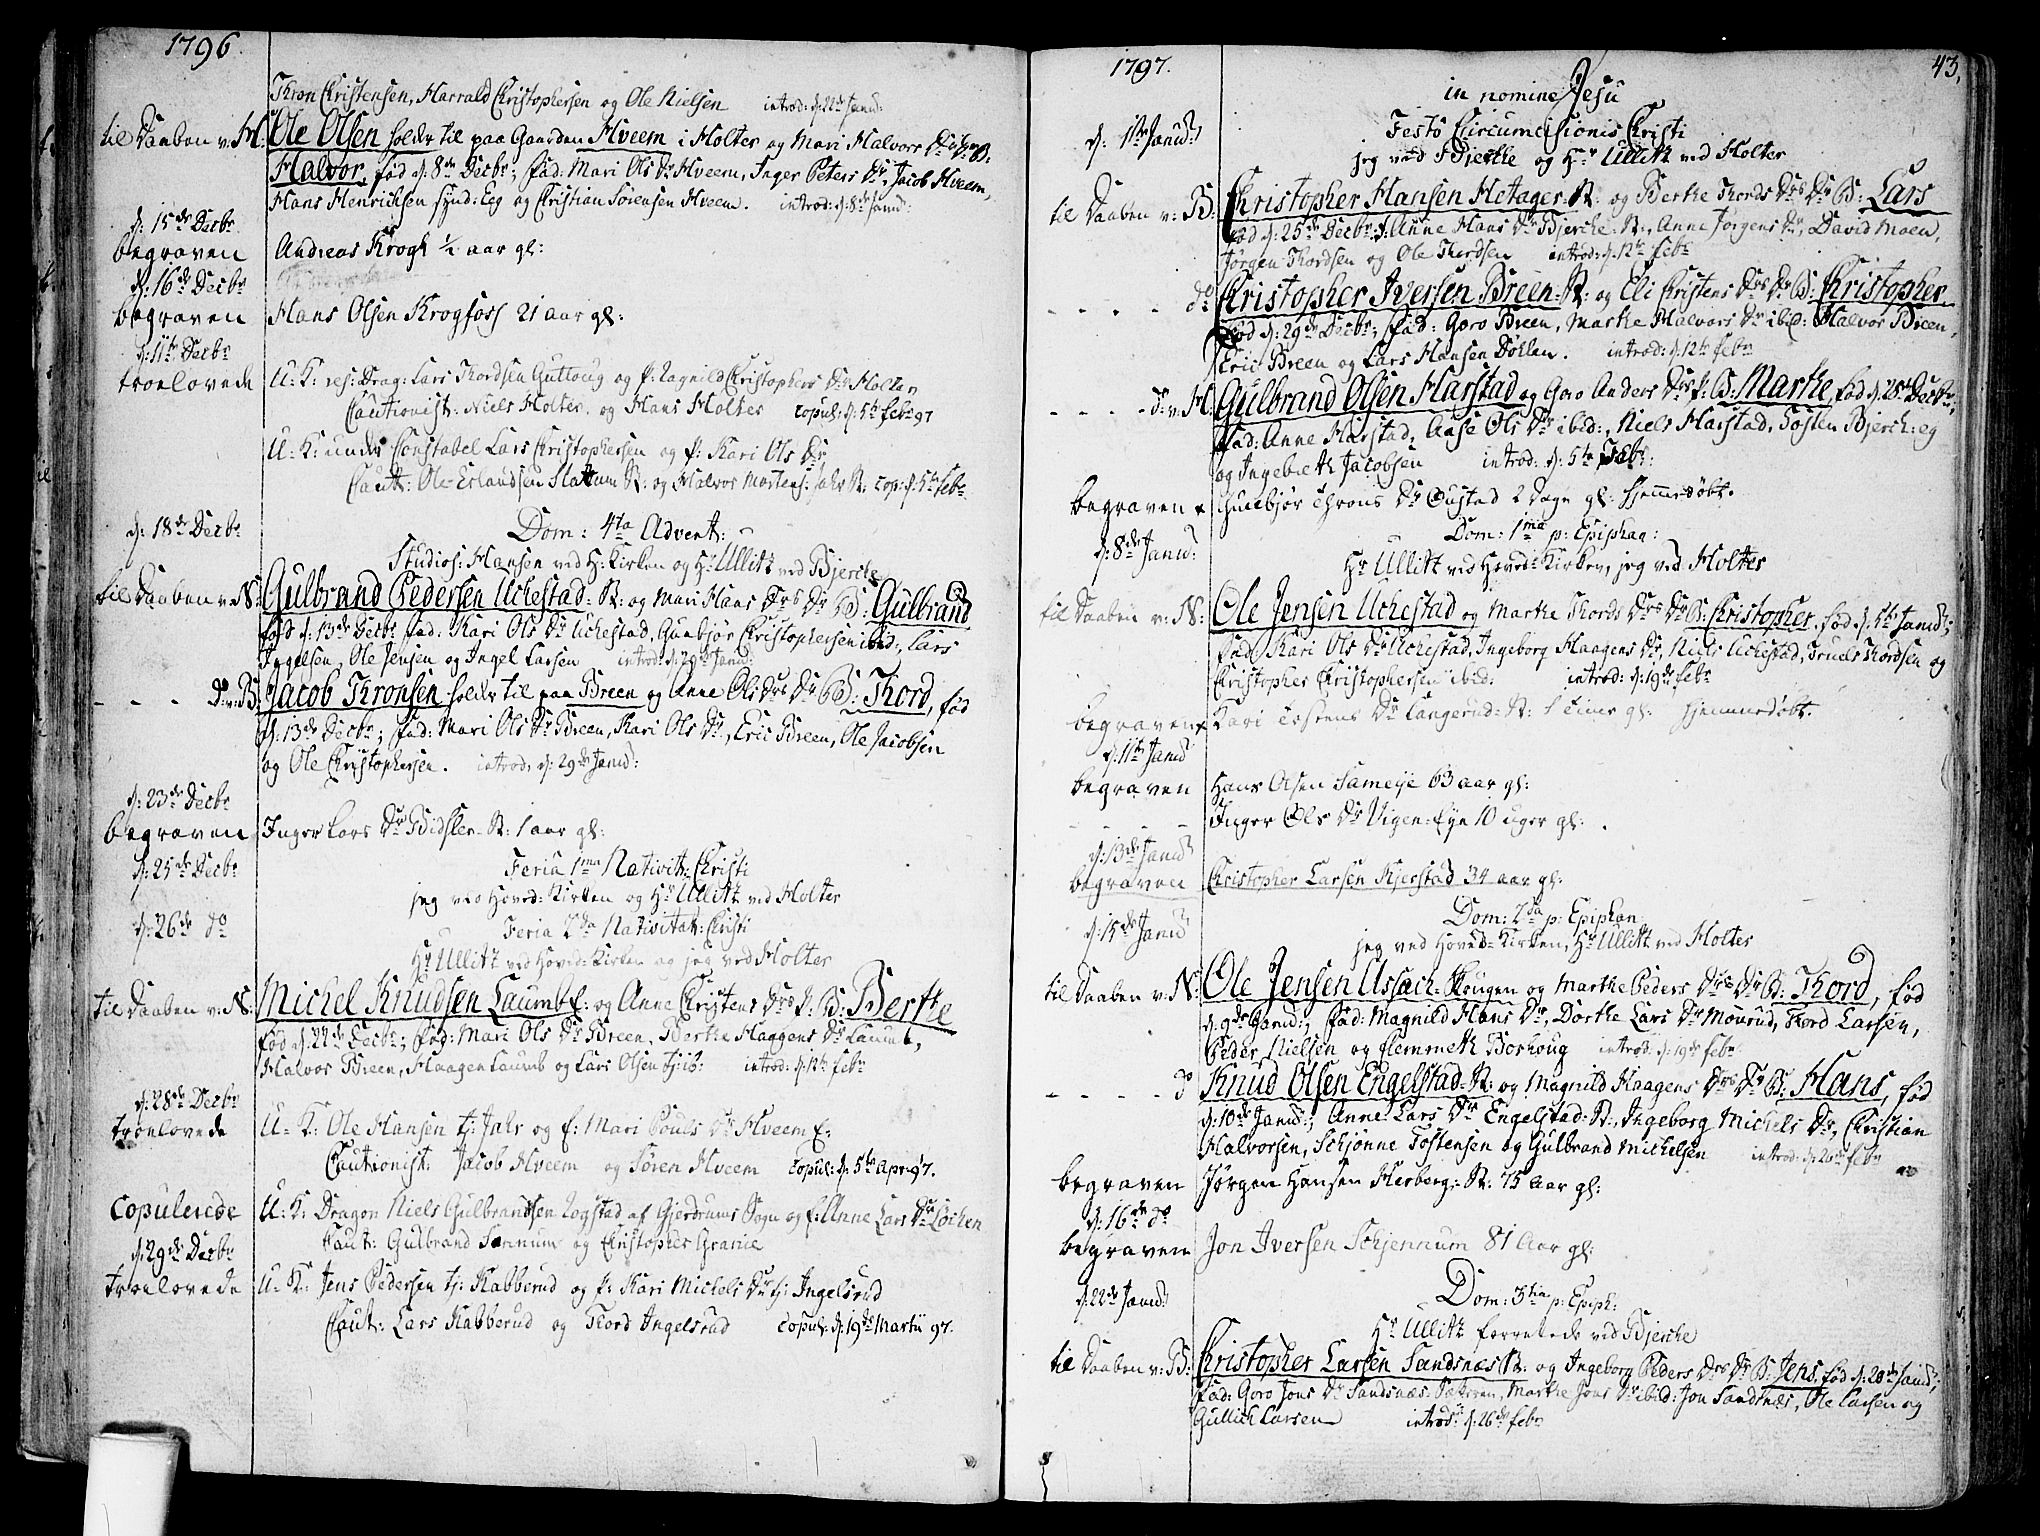 1796.
Thron Christensen, Harrald Christophersen og Ole Nielsen introd: d: 22de Janu:
til Daaben v: H: Ole Olsen holder til paa Gaarden Hveem i Holter og Mari Halvors Dr B:
Halvor, fød d: 8de Decbr; fad: Mari Ols Dr Hveem, Inger Peters Dr, Jacob Hveem,
Hans Henrichsen synd: Eg og Christian Sørensen Hveem. introd: d: 8de Janu:
d: 15de Decbr
begraven Andreas Krogh ½ aar gl:
d: 16de Decbr
begraven Hans Olsen Krogfoss 21 aar gl:
d: 11te Decbr
troelovede U: K: res: Drag: Lars Thordsen Guttoug og P: Ragnild Christophers Dr Holter
Cautionist: Niels Holter og Hans Holter copul: d: 5te Febr 97
U: K: Constabel Lars Christophersen og P: Kari Ols Dr
Caut: Ole Erlandsen Slattum R: og Halvor Mortens: Jahr R: cop: d: 5te Febr
d: 18de Decbr Dom: 4ta Advent:
Studios: Hansen ved H: Kirken og Hr Ullitz ved Bjerche
til Daaben v: N: Gulbrand Pedersen Uchestad R: og Mari Hans Drs Dr B: Gulbrand
fød d: 13de Decbr fad: Kari Ols Dr Uchestad, Gunbjør Christophersen ibid:, Lars
Ingelsen, Ole Jensen og Ingel Larsen introd: d: 29de Janu:
- - - do v: B: Jacob Thronsen holder til paa Breen og Anne Ols Drs Dr B: Thord, fød
d: 13de Decbr; fad: Mari Ols Dr Breen, Kari Ols Dr, Eric Breen, Ole Jacobsen
og Ole Christophersen. introd: d: 29de Janu:
d: 23de Decbr
begraven Inger Lars Dr Bidsler R: 1 aar gl:
d: 25de Decbr Feria 1ma Nativit: Christi
jeg ved Hoved-Kirken og Hr Ullitz ved Holter
d: 26de do Feria 2da Nativitat: Christi
Hr Ullitz ved Hoved-Kirken og jeg ved Holter
til Daaben v: N: Michel Knudsen Laumb E: og Anne Christens Drs P: B: Berthe
fød d: 22de Decbr; fad: Mari Ols Dr Breen, Berthe Haagens Dr Laumb,
Halvor Breen, Haagen Laumb og Lars Olsen tj: ib: introd: d: 12te Febr
d: 28de Decbr
troelovede U: K: Ole Hansen tj: Jahr og E: Mari Pouls Dr Hveem E:
Cautionist: Jacob Hveem og Søren Hveem copul: d: 5te Apr: 97.
Copulerede U: K: Dragon Niels Gulbrandsen Logstad af Gjerdrums Sogn og E: Anne Lars Dr Løchen
Caut: Gulbrand Sønnum og Christopher
d: 29de Decbr
troelovede U: K: Jens Pedersen tj: Kabberud og P: Kari Michels Dr tj: Ingelsrud
Caut: Lars Kabberud og Thord Ingelsrud copul: d: 19de Martii 97.
1797. 43.
in nomine Jesu
d: 1ste Janu: Festo Circumcisionis Christi
jeg ved Bjerche og Hr Ullitz ved Holter
til Daaben v: B: Christopher Hansen Hetager R: og Berthe Thords Drs Dr B: Lars
fød d: 25de Decbr: Anne Hans Dr Bjerche R:, Anne Jørgens Dr, David Moen,
Jørgen Thordsen og Ole Thordsen introd: d: 12te Febr
- - - - do Christopher Iversen Breen R: og Eli Christens Drs Dr B: Christopher
fød d: 29de Decbr; fad: Goro Breen, Marthe Halvors Dr ibid: Halvor Breen,
Eric Breen og Lars Hansen Døhlen. introd: d: 12te Febr
- - - - do v: H: Gulbrand Olsen Harstad og Goro Anders Drs P: B: Marthe, fød d: 28de Decbr,
fad: Anne Harstad, Aase Ols Dr ibid:, Niels Harstad, Tosten Bjerch: eg
og Ingebreth Jacobsen introd: d: 5te Febr:
begraven Gunbjør Throns Dr Oustad 2 Dage gl: hjemmedøbt.
d: 8de Janu: Dom: 1ma p: Epiphan:
Hr Ullitz ved Hoved-Kirken, jeg ved Holter
til Daaben v: N: Ole Jensen Uchestad og Marthe Thords Drs Dr B: Christopher, fød d: 5te Janu:,
fad: Kari Ols Dr Uchestad, Ingeborg Haagens Dr, Niels Uchestad, Truels Thordsen og
Christopher Christophersen ibid: introd: d: 19de Febr
begraven Kari Tostens Dr Langerud R: 1 Time gl: hjemmedøbt.
d: 11te Janu
begraven Hans Olsen Sameije 63 aar gl:
Inger Ols Dr Vigen: Eye 10 uger gl:
d: 13de Janu
begraven Christopher Larsen Kjerstad 34 aar gl:
d: 15de Janu Dom: 2da p: Epiphan
jeg ved Hoved-Kirken, Hr Ullitz ved Holter
til Daaben v: N: Ole Jensen Ussach-Skougen og Marthe Peders Drs Dr B: Thord, fød
d: 9de Janu:, fad: Magnild Hans Dr, Dorthe Lars Dr Mourud, Thord Larsen,
Peder Nielsen og Hemmeth Borhoug introd: d: 19de Febr
- - - - do Knud Olsen Engelstad R: og Magnild Haagens Drs Dr B: Hans, fød
d: 10de Janu:, Anne Lars Dr Engelstad: R:, Ingeborg Michels Dr, Christian
Halvorsen, Schjønne Tostensen og Gulbrand Michelsen introd: d: 26de Febr
begraven Jørgen Hansen Herberg: R: 75 Aar gl:
d: 16de do
begraven Jon Iversen Schjennum 81 Aar gl:
d: 22de Janu: Dom: 3tia p: Epiph:
Hr Ullitz forrettede ved Bjerche
til Daaben v: B: Christopher Larsen Sandsnæs R: og Ingeborg Peders Drs Dr B: Jens, fød d: 20de Janu:,
fad: Goro Jons Dr Sandsnæs-Sætren, Marthe Jons Dr ibid: Jon Sandsnæs, Ole Larsen og
Gullich Larsen introd: d: 26de Febr